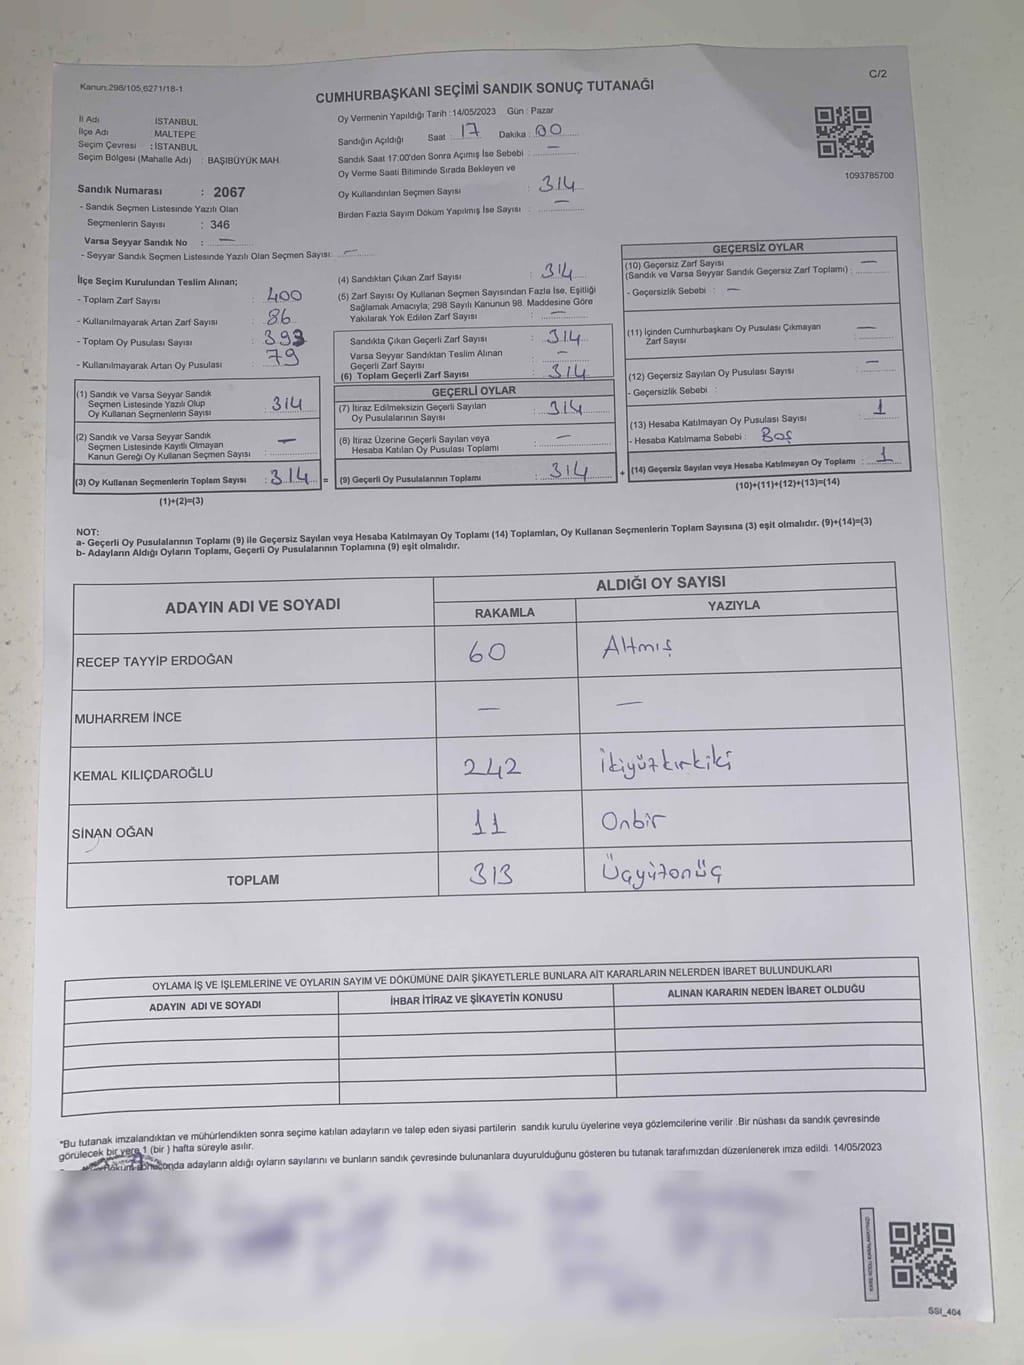 Kanun:298/105,6271/18-1
C/2
CUMHURBAŞKANI SEÇİMİ SANDIK SONUÇ TUTANAĞI
İl Adı İSTANBUL
İlçe Adı MALTEPE
Seçim Çevresi : İSTANBUL
Seçim Bölgesi (Mahalle Adı) : BAŞIBÜYÜK MAH.
Oy Vermenin Yapıldığı Tarih :14/05/2023 Gün : Pazar
Sandığın Açıldığı Saat : 17 Dakika : 00
Sandık Saat 17:00'den Sonra Açımış İse Sebebi : —
Oy Verme Saati Bitiminde Sırada Bekleyen ve
Oy Kullandırılan Seçmen Sayısı : 314
Birden Fazla Sayım Döküm Yapılmış İse Sayısı : —
1093785700
Sandık Numarası : 2067
- Sandık Seçmen Listesinde Yazılı Olan
Seçmenlerin Sayısı : 346
Varsa Seyyar Sandık No : —
- Seyyar Sandık Seçmen Listesinde Yazılı Olan Seçmen Sayısı: —
İlçe Seçim Kurulundan Teslim Alınan;
- Toplam Zarf Sayısı : 400
- Kullanılmayarak Artan Zarf Sayısı : 86
- Toplam Oy Pusulası Sayısı : 393
- Kullanılmayarak Artan Oy Pusulası : 79
(1) Sandık ve Varsa Seyyar Sandık
Seçmen Listesinde Yazılı Olup
Oy Kullanan Seçmenlerin Sayısı : 314
(2) Sandık ve Varsa Seyyar Sandık
Seçmen Listesinde Kayıtlı Olmayan
Kanun Gereği Oy Kullanan Seçmen Sayısı : —
(3) Oy Kullanan Seçmenlerin Toplam Sayısı : 314 =
(1)+(2)=(3)
(4) Sandıktan Çıkan Zarf Sayısı : 314
(5) Zarf Sayısı Oy Kullanan Seçmen Sayısından Fazla İse, Eşitliği
Sağlamak Amacıyla; 298 Sayılı Kanunun 98. Maddesine Göre
Yakılarak Yok Edilen Zarf Sayısı : —
Sandıkta Çıkan Geçerli Zarf Sayısı : 314
Varsa Seyyar Sandıktan Teslim Alınan
Geçerli Zarf Sayısı : —
(6) Toplam Geçerli Zarf Sayısı : 314
GEÇERLİ OYLAR
(7) İtiraz Edilmeksizin Geçerli Sayılan
Oy Pusulalarının Sayısı : 314
(8) İtiraz Üzerine Geçerli Sayılan veya
Hesaba Katılan Oy Pusulası Toplamı : —
(9) Geçerli Oy Pusulalarının Toplamı : 314 +
GEÇERSİZ OYLAR
(10) Geçersiz Zarf Sayısı
(Sandık ve Varsa Seyyar Sandık Geçersiz Zarf Toplamı) : —
- Geçersizlik Sebebi : —
(11) İçinden Cumhurbaşkanı Oy Pusulası Çıkmayan
Zarf Sayısı : —
(12) Geçersiz Sayılan Oy Pusulası Sayısı : —
- Geçersizlik Sebebi :
(13) Hesaba Katılmayan Oy Pusulası Sayısı : 1
- Hesaba Katılmama Sebebi : Boş
(14) Geçersiz Sayılan veya Hesaba Katılmayan Oy Toplamı : 1
(10)+(11)+(12)+(13)=(14)
NOT:
a- Geçerli Oy Pusulalarının Toplamı (9) ile Geçersiz Sayılan veya Hesaba Katılmayan Oy Toplamı (14) Toplamları, Oy Kullanan Seçmenlerin Toplam Sayısına (3) eşit olmalıdır. (9)+(14)=(3)
b- Adayların Aldığı Oyların Toplamı, Geçerli Oy Pusulalarının Toplamına (9) eşit olmalıdır.
ADAYIN ADI VE SOYADI
ALDIĞI OY SAYISI
RAKAMLA YAZIYLA
RECEP TAYYİP ERDOĞAN 60 Altmış
MUHARREM İNCE — —
KEMAL KILIÇDAROĞLU 242 İkiyüzkırkiki
SİNAN OĞAN 11 Onbir
TOPLAM 313 Üçyüzonüç
OYLAMA İŞ VE İŞLEMLERİNE VE OYLARIN SAYIM VE DÖKÜMÜNE DAİR ŞİKAYETLERLE BUNLARA AİT KARARLARIN NELERDEN İBARET BULUNDUKLARI
ADAYIN ADI VE SOYADI İHBAR İTİRAZ VE ŞİKAYETİN KONUSU ALINAN KARARIN NEDEN İBARET OLDUĞU
*Bu tutanak imzalandıktan ve mühürlendikten sonra seçime katılan adayların ve talep eden siyasi partilerin sandık kurulu üyelerine veya gözlemcilerine verilir. Bir nüshası da sandık çevresinde
görülecek bir yere 1 (bir ) hafta süreyle asılır.
adayların aldığı oyların sayılarını ve bunların sandık çevresinde bulunanlara duyurulduğunu gösteren bu tutanak tarafımızdan düzenlenerek imza edildi. 14/05/2023
SSI_404